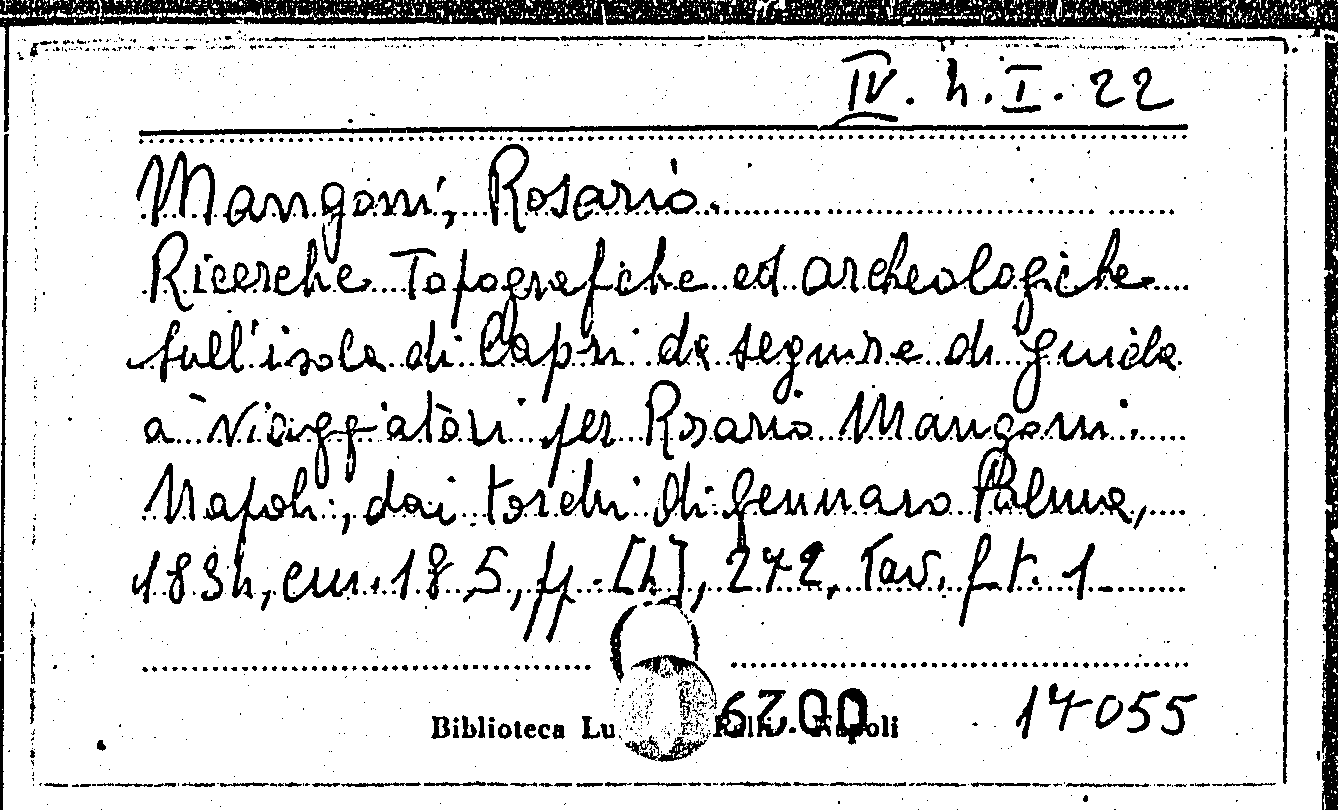 IV. 4. I. 22
Mangoni, Rosario.
Ricerche Topografiche ed archeologiche
sull'isola di Capri da seguire di guida
a' viaggiatori per Rosario Mangoni.
Napoli, dai torchi di Gennaro Palma,
1834, cm. 18,5, pp. [4], 272, Tav. f. t. 1
Biblioteca Napoli
17055